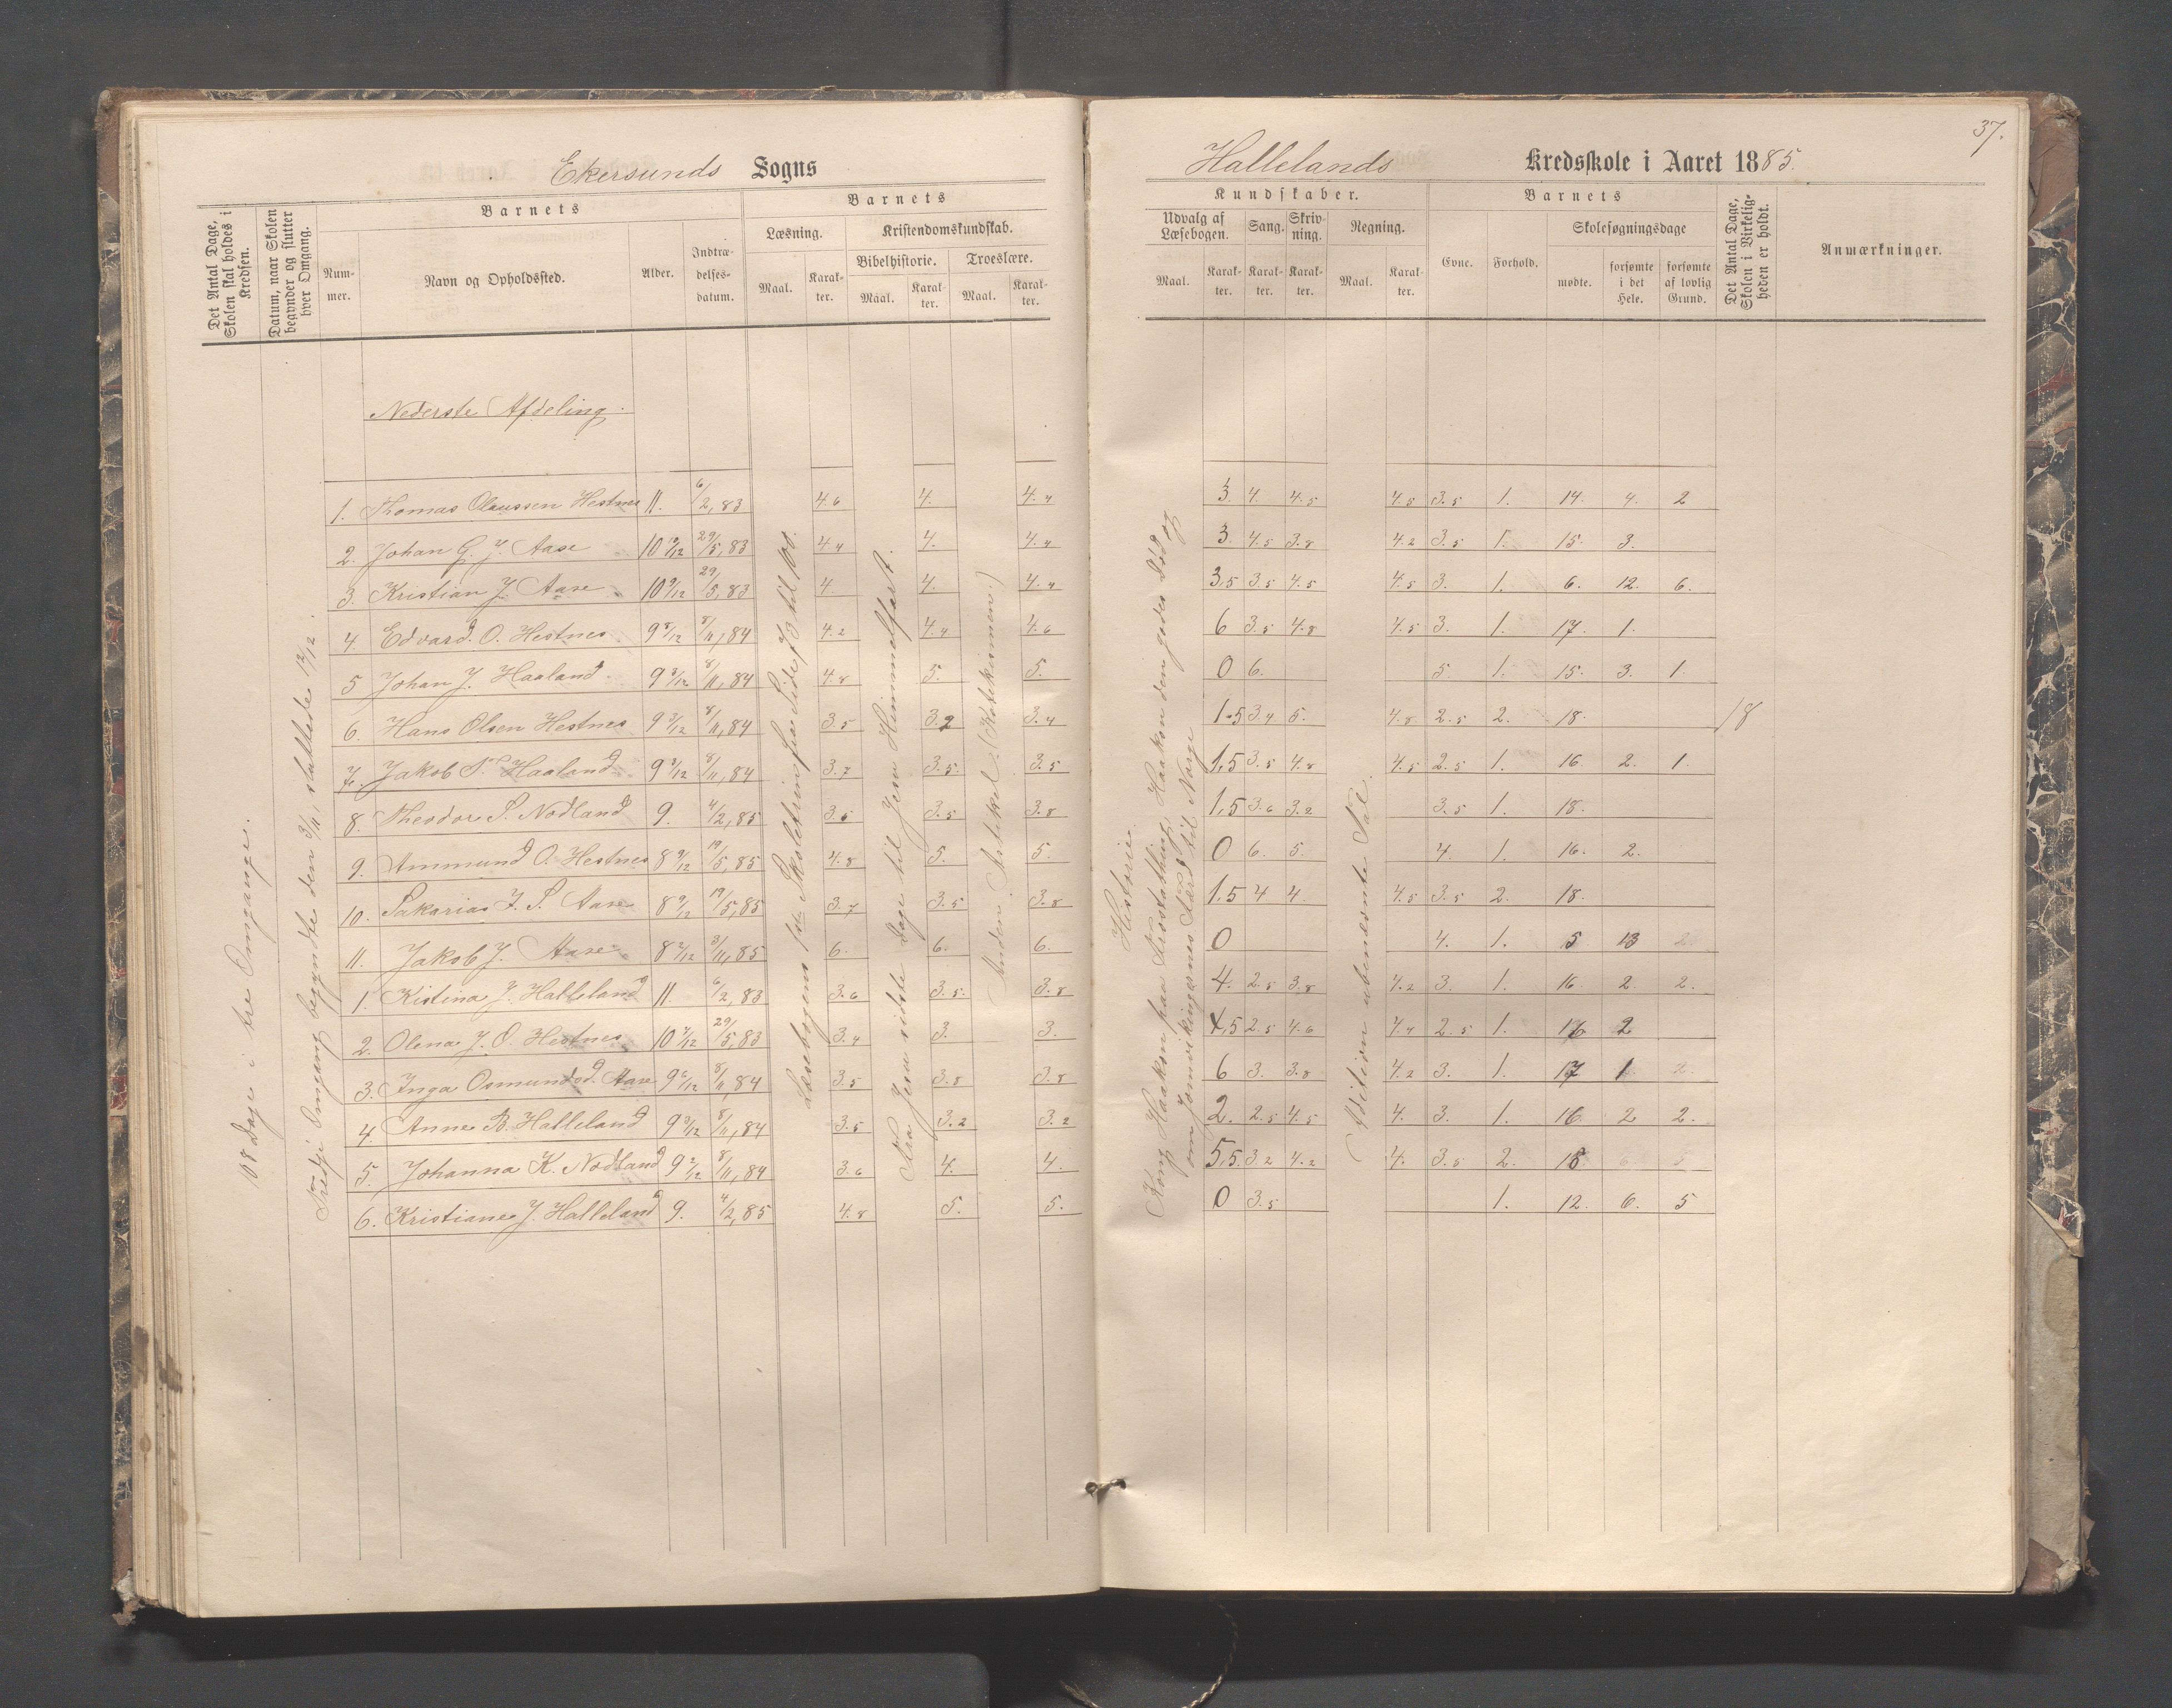 37.
Ekersunds Sogns
Hallelands Kredsskole i Aaret 1885.
Det Antal Dage, Skolen skal holdes i Kredsen.
Datum, naar Skolen begynder og slutter hver Omgang.
Barnets
Nummer.
Navn og Opholdssted.
Alder.
Indtrædelsesdatum.
Barnets
Læsning.
Maal.
Karakter.
Kristendomskundskab.
Bibelhistorie.
Maal.
Karakter.
Troeslære.
Maal.
Karakter.
Kundskaber.
Udvalg af Læsebogen.
Maal.
Karakter.
Sang.
Karakter.
Skrivning.
Karakter.
Regning.
Maal.
Karakter.
Barnets
Evne.
Forhold.
Skolesøgningsdage
mødte.
forsømte i det Hele.
forsømte af lovlig Grund.
Det Antal Dage, Skolen i Virkeligheden er holdt.
Anmærkninger.
108 Dage i tre Omgange.
Tredje Omgang begyndte den 3/11, sluttede 12/12.
Nederste Afdeling.
Læsebogens 1ste Skoletrin fra Side 73 til 100.
Fra Jesu sidste Dage til Jesu Himmelfart.
Anden Artikel. (Katekismen.)
Historie.
Kong Haakon paa Frostathing, Haakon den godes Død og
om Jomsvikingernes Færd til Norge
(Adition ubenævnte Tal.
1. Thomas Olaussen Hestnes 11. 6/2, 83 4.6 4. 4.4 3. 4. 4.5 4.5 3.5 1. 14. 4. 2
2. Johan G. J. Aase 10 10/12 29/5, 83 4.4 4. 4.4 3. 4.5 3.8 4.2 3.5 1. 15. 3.
3. Kristian J. Aase 10 9/12 29/5, 83 4. 4. 4.4 3,5 3.5 4.5 4.5 3. 1. 6. 12. 6.
4. Edvard O. Hestnes 9 8/12 8/11, 84 4.2 4.4 4.6 6 3.5 4.8 4.5 3. 1. 17. 1.
5 Johan J. Haaland. 9 3/12 8/11, 84 4.8 5. 5. 0 6. 5. 1. 15. 3. 1.
6. Hans Olsen Hestnes 9 3/12 8/11, 84 3.5 3.2 3.4 1.5 3.4 5. 4.8 2.5 2. 18. 18
7. Jakob T. Haaland 9 3/12 8/11, 84 3.7 3.5. 3.5 1,5 3.5 4.8 4.5 2.5 1. 16. 2. 1.
8. Theodor S. Nodland 9. 4/2, 85 3.5 3.5 3.8 1,5 3.6 3.2 3.5 1. 18.
9. Ammund O. Hestnes 8 9/12 19/5, 85 4.8 5. 5. 0 6. 5. 4. 1. 16. 2.
10. Sakarias J. S. Aase 8 9/12 19/5, 85 3.7 3.5 3.8 1,5 4 4 4.5 3.5 2. 18.
11. Jakob J. Aase 8 2/12 3/11, 85 6. 6. 6. 0 4. 1. 5 13
1. Kistina J. Halleland 11. 6/2, 83 3.6 3.5. 3.8 4. 2.5 3.8 4.2 3. 1. 16. 2 2.
2. Olena J. O. Hestnes 10 7/12 29/5, 83 3.4 3. 3. 4,5 2.5 4.6 4.4 2.5 1. 16 2
3. Inga Osmundsd. Aase 9 6/12 8/11, 84 3.5 3.8 3.8 6 3. 3.8 4.2 3. 1. 17 1
4. Anne B. Halleland 9 3/12 8/11, 84 3.5 3.2 3.2 2. 2.5 4.5 4. 3. 1. 16. 2 2.
5. Johanna K. Nodland 9 2/12 8/11, 84 3.6 4. 4. 5,5. 3.2 4.2 4. 3.5 2. 18.
6. Kristiane J. Halleland 9. 4/2, 85 4.8 5. 5. 0 3.5 1. 12. 6. 5